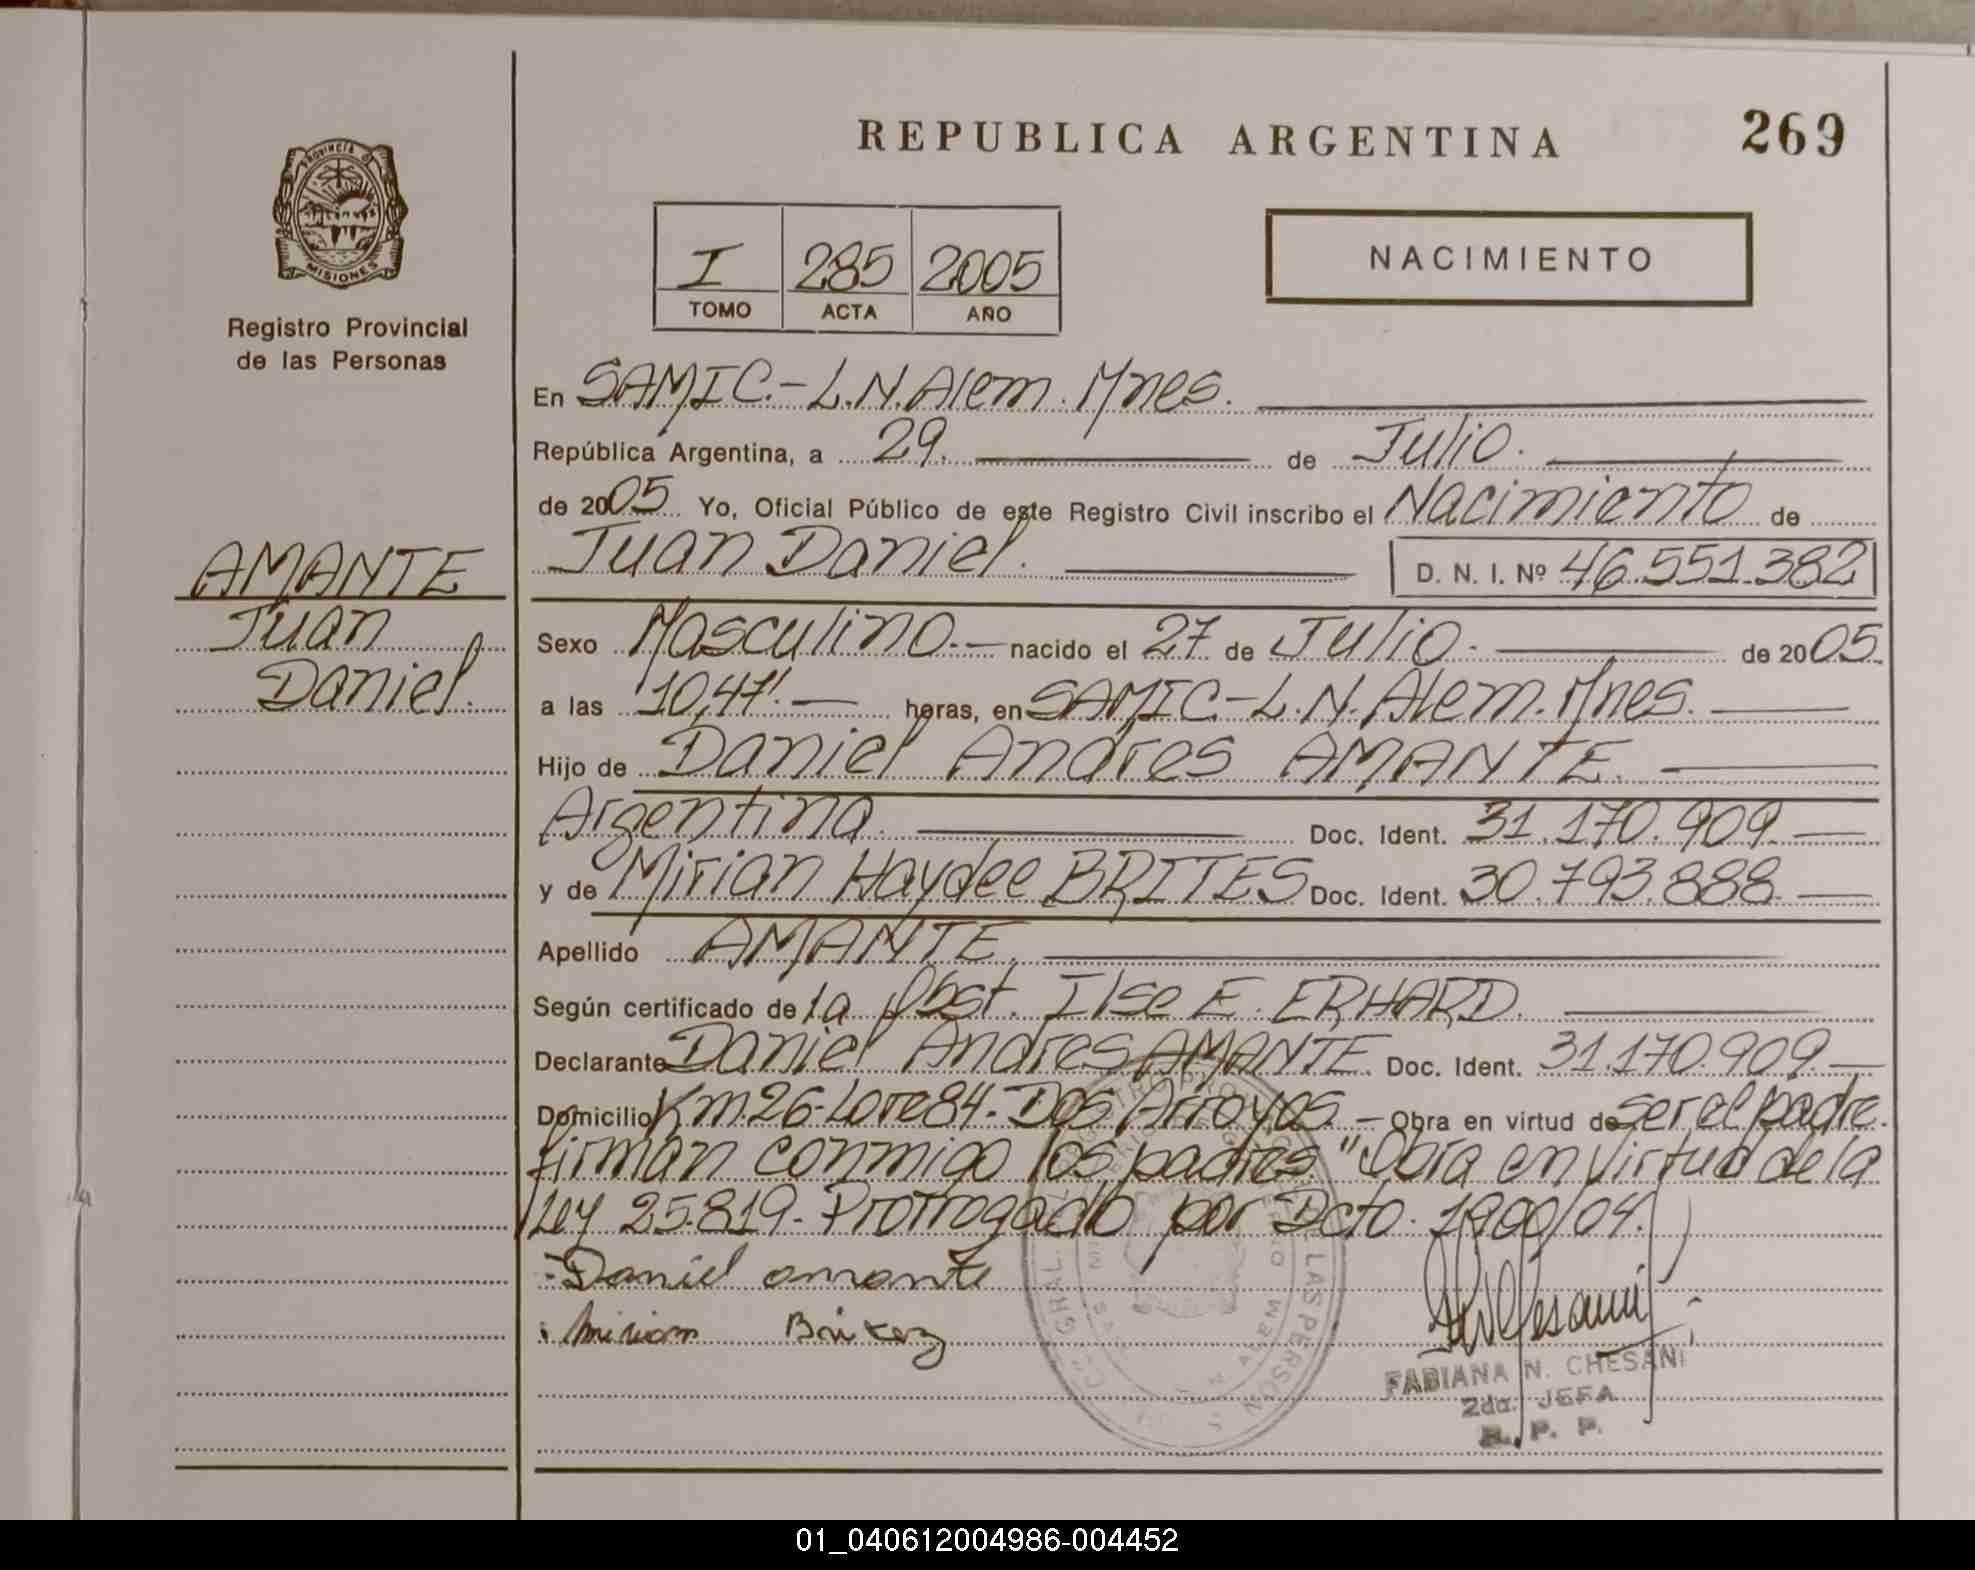 PROVINCIA D
MISIONES
Registro Provincial
de las Personas
AMANTE
Juan
Daniel.
REPUBLICA ARGENTINA
269
I 285 2005
TOMO ACTA AÑO
NACIMIENTO
En SAMIC.- L.N. Alem. Mnes.
República Argentina, a 29. de Julio.
de 2005 Yo, Oficial Público de este Registro Civil inscribo el Nacimiento de
Juan Daniel. D. N. I. Nº 46.551.382
Sexo Masculino.- nacido el 27 de Julio. de 2005.
a las 10,47'.- horas, en SAMIC.- L.N. Alem. Mnes.
Hijo de Daniel Andres AMANTE.
Argentina. Doc. Ident. 31.170.909.-
y de Mirian Haydee BRITES Doc. Ident. 30.793.888.-
Apellido AMANTE.
Según certificado de la Obst. Ilse E. ERHARD.
Declarante Daniel Andres AMANTE. Doc. Ident. 31.170.909.-
Domicilio Km.26-Lote 84. Dos Arroyos.- Obra en virtud de ser el padre.
firman conmigo los padres. "Obra en virtud de la
Ley 25.819.- Prorrogado por Dcto. 1900/04.
- Daniel amante
. Miriam
FABIANA N. CHESANI
2da. JEFA
R. P. P.
01_040612004986-004452